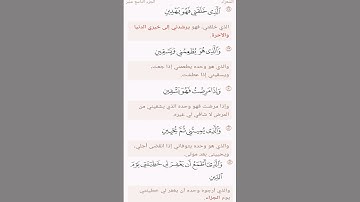 ٱلَّذِى خَلَقَنِى فَهُوَ يَهْدِينِ
الذي خلقني، فهو يرشدني إلى خيري الدنيا
والآخرة.
وَٱلَّذِى هُوَ يُطْعِمُنِى وَيَسْقِينِ
والذي هو وحده يطعمني إذا جعت،
ويسقيني إذا عطشت.
وَإِذَا مَرِضْتُ فَهُوَ يَشْفِينِ
وإذا مرضت فهو وحده الذي يشفيني من
المرض لا شافي لي غيره.
وَٱلَّذِى يُمِيتُنِى ثُمَّ يُحْيِينِ
والذي هو وحده يتوفاني إذا انقضى أجلي،
ويحييني بعد موتي.
وَٱلَّذِىٓ أَطْمَعُ أَن يَغْفِرَ لِى خَطِيٓـَٔتِى يَوْمَ
ٱلدِّينِ
والذي أرجوه وحده أن يغفر لي خطيئتي
يوم الجزاء.